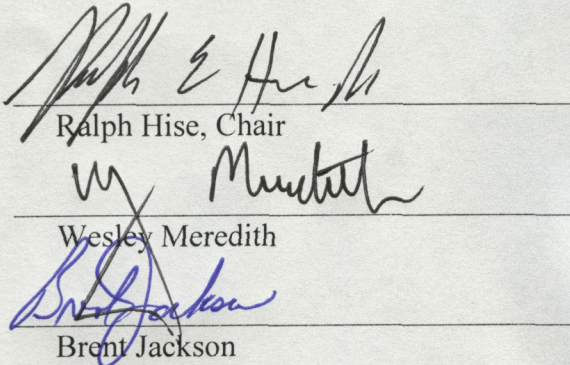 Ralph E Hise
Ralph Hise, Chair
Wesley Meredith
Wesley Meredith
Brent Jackson
Brent Jackson